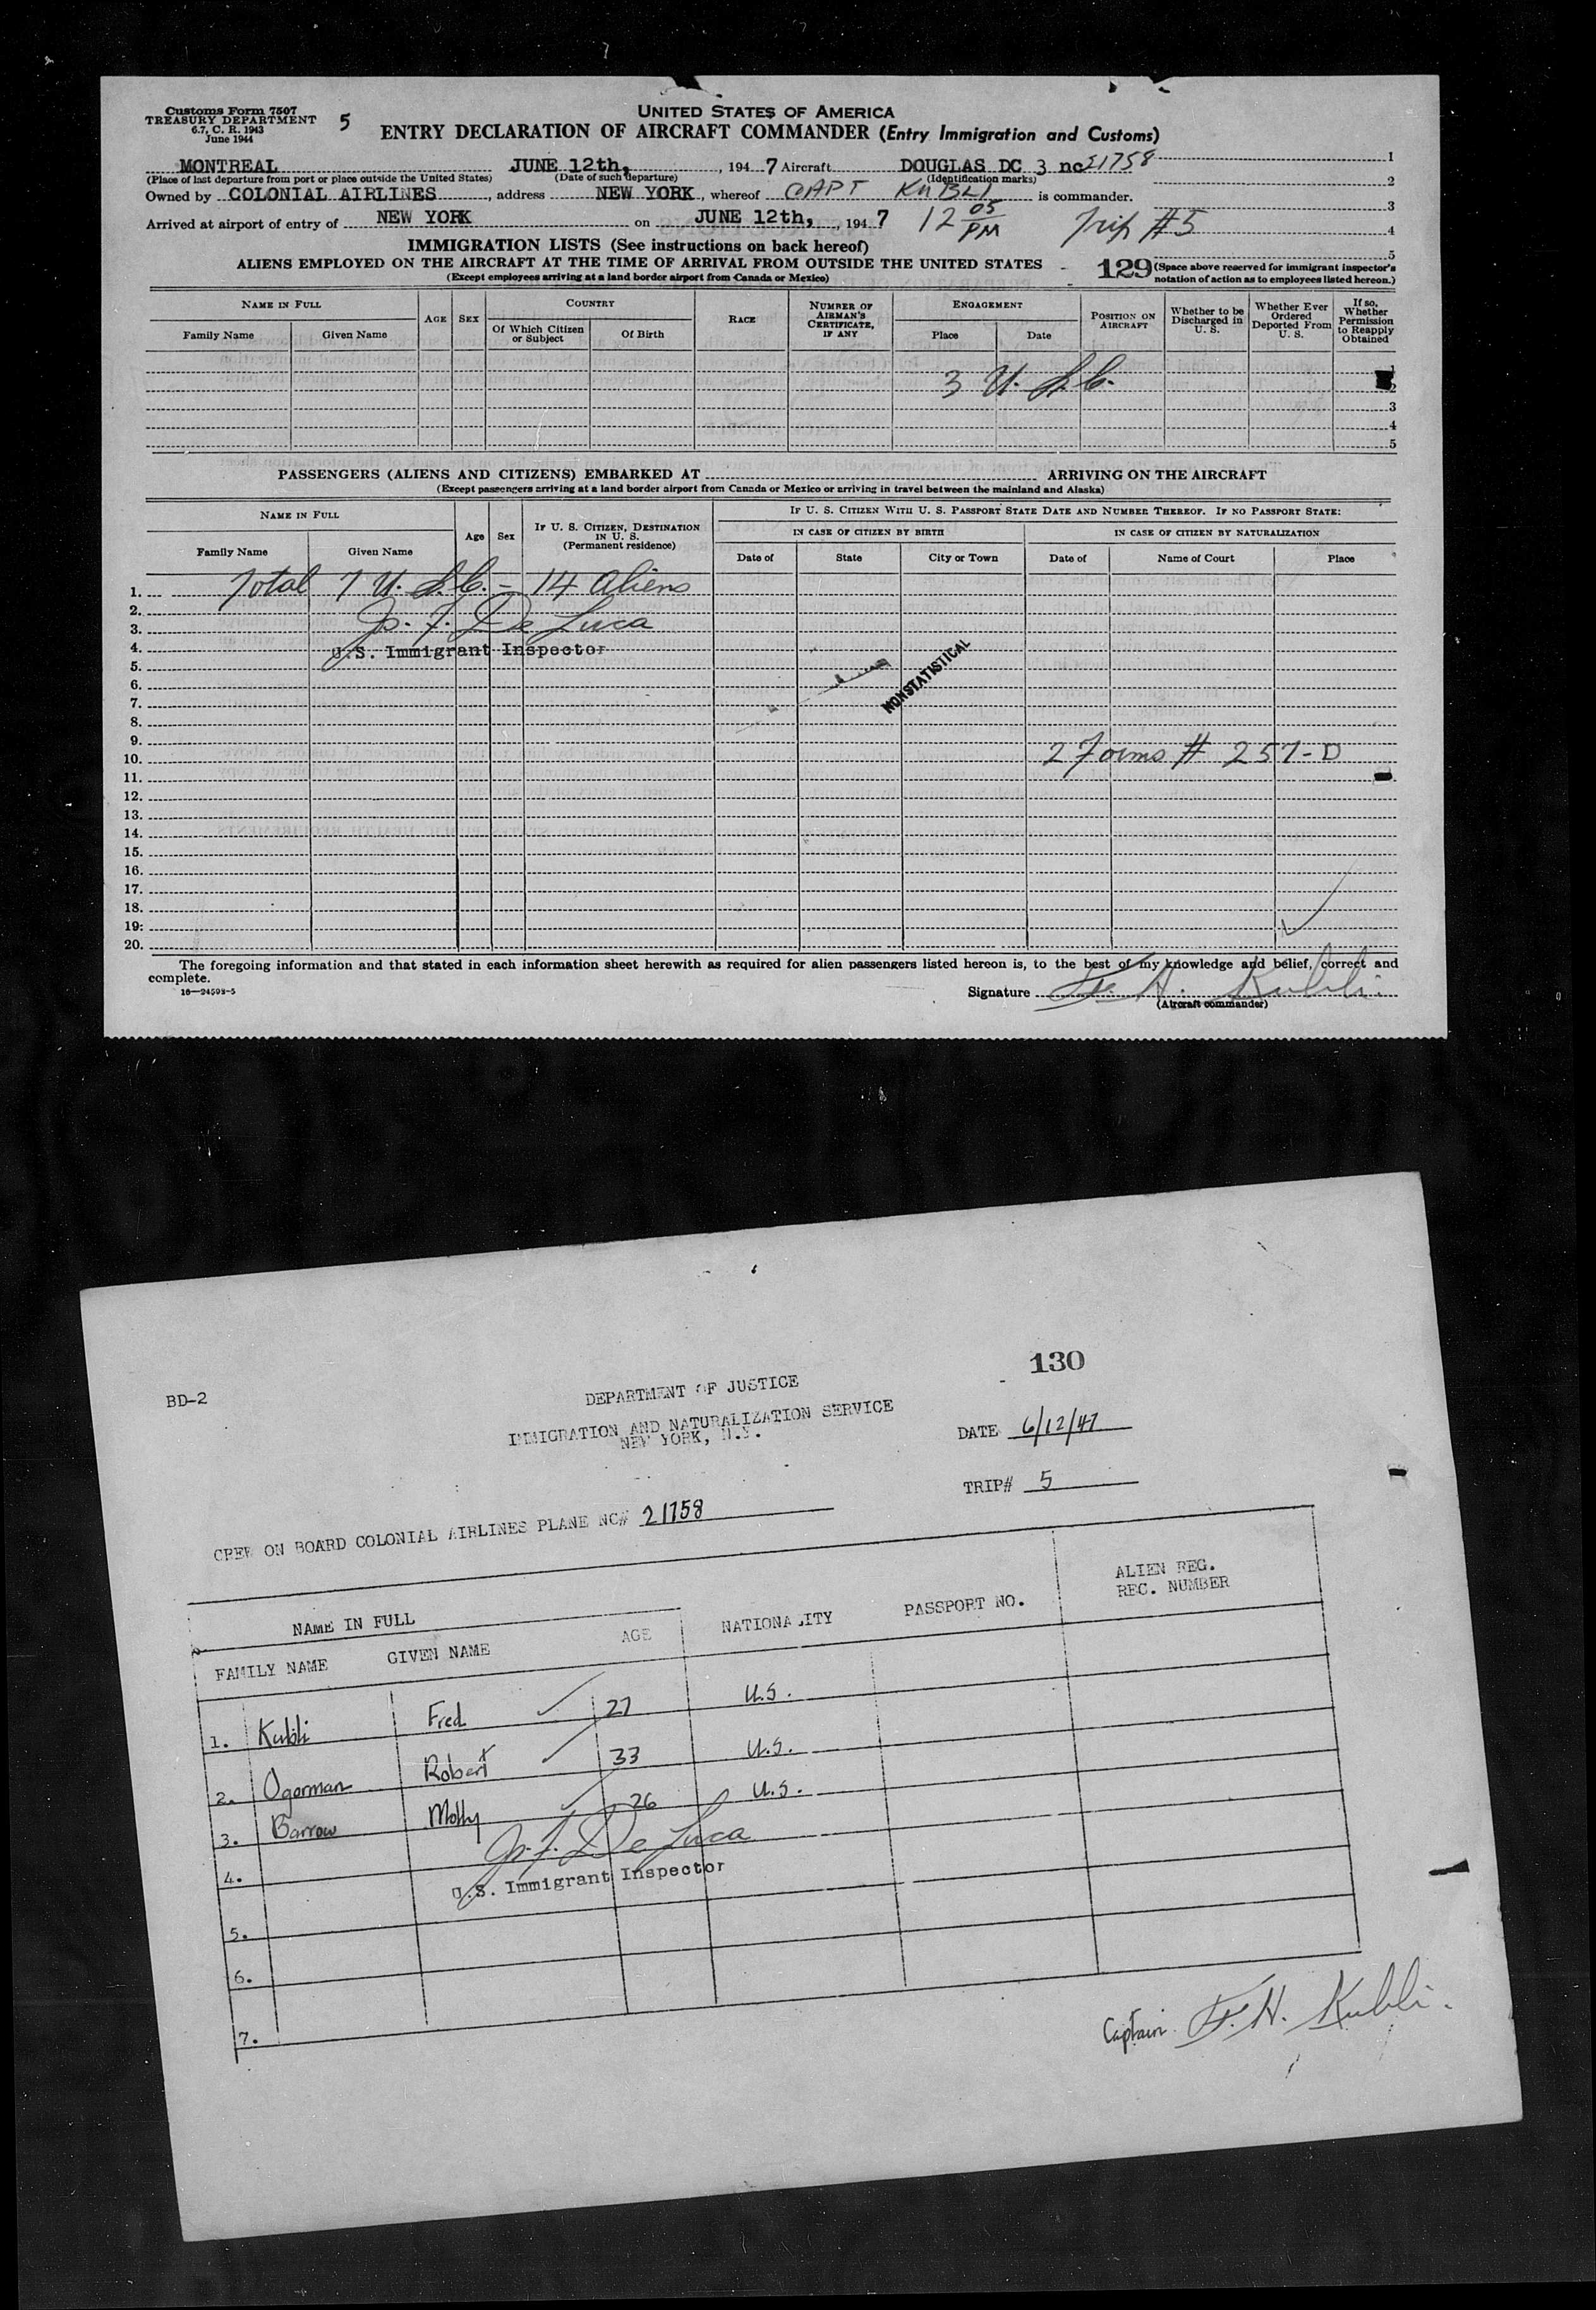 Customs Form 7507
TREASURY DEPARTMENT
6.7, C. R. 1943
June 1944
5
UNITED STATES OF AMERICA
ENTRY DECLARATION OF AIRCRAFT COMMANDER (Entry Immigration and Customs)
MONTREAL JUNE 12th, , 194 7 Aircraft DOUGLAS DC 3 nc 21758 1
(Place of last departure from port or place outside the United States) (Date of such departure) (Identification marks) 2
Owned by COLONIAL AIRLINES , address NEW YORK , whereof CAPT KUBLI is commander. 3
Arrived at airport of entry of NEW YORK on JUNE 12th, , 194 7 12 05 PM Trip #5 4
IMMIGRATION LISTS (See instructions on back hereof) 5
ALIENS EMPLOYED ON THE AIRCRAFT AT THE TIME OF ARRIVAL FROM OUTSIDE THE UNITED STATES 129 (Space above reserved for immigrant inspector's
(Except employees arriving at a land border airport from Canada or Mexico) notation of action as to employees listed hereon.)
NAME IN FULL AGE SEX COUNTRY RACE NUMBER OF AIRMAN'S CERTIFICATE, IF ANY ENGAGEMENT POSITION ON AIRCRAFT Whether to be Discharged in U. S. Whether Ever Ordered Deported From U. S. If so, Whether Permission to Reapply Obtained
Family Name Given Name Of Which Citizen or Subject Of Birth Place Date
1
3 U. S. C. 2
3
4
5
PASSENGERS (ALIENS AND CITIZENS) EMBARKED AT ARRIVING ON THE AIRCRAFT
(Except passengers arriving at a land border airport from Canada or Mexico or arriving in travel between the mainland and Alaska)
NAME IN FULL Age Sex IF U. S. CITIZEN, DESTINATION IN U. S. (Permanent residence) IF U. S. CITIZEN WITH U. S. PASSPORT STATE DATE AND NUMBER THEREOF. IF NO PASSPORT STATE:
IN CASE OF CITIZEN BY BIRTH IN CASE OF CITIZEN BY NATURALIZATION
Family Name Given Name Date of State City or Town Date of Name of Court Place
1. Total 7 U. S. C. - 14 Aliens
2.
3. Jo. F. De Luca
4. U.S. Immigrant Inspector
5.
6.
7. NONSTATISTICAL
8.
9.
10. 2 Forms # 257-D
11.
12.
13.
14.
15.
16.
17.
18.
19.
20.
The foregoing information and that stated in each information sheet herewith as required for alien passengers listed hereon is, to the best of my knowledge and belief, correct and
complete.
16—24598-5
Signature F. H. Kubli.
(Aircraft commander)
130
BD-2
DEPARTMENT OF JUSTICE
IMMIGRATION AND NATURALIZATION SERVICE
NEW YORK, N.Y.
DATE 6/12/47
TRIP# 5
CREW ON BOARD COLONIAL AIRLINES PLANE NC# 21758
NAME IN FULL AGE NATIONALITY PASSPORT NO. ALIEN REG. REC. NUMBER
FAMILY NAME GIVEN NAME
1. Kubli Fred 27 U.S.
2. Ogorman Robert 33 U.S.
3. Barrow Molly 26 U.S.
4. Jo. F. De Luca
U.S. Immigrant Inspector
5.
6.
7.
Captain F. H. Kubli.